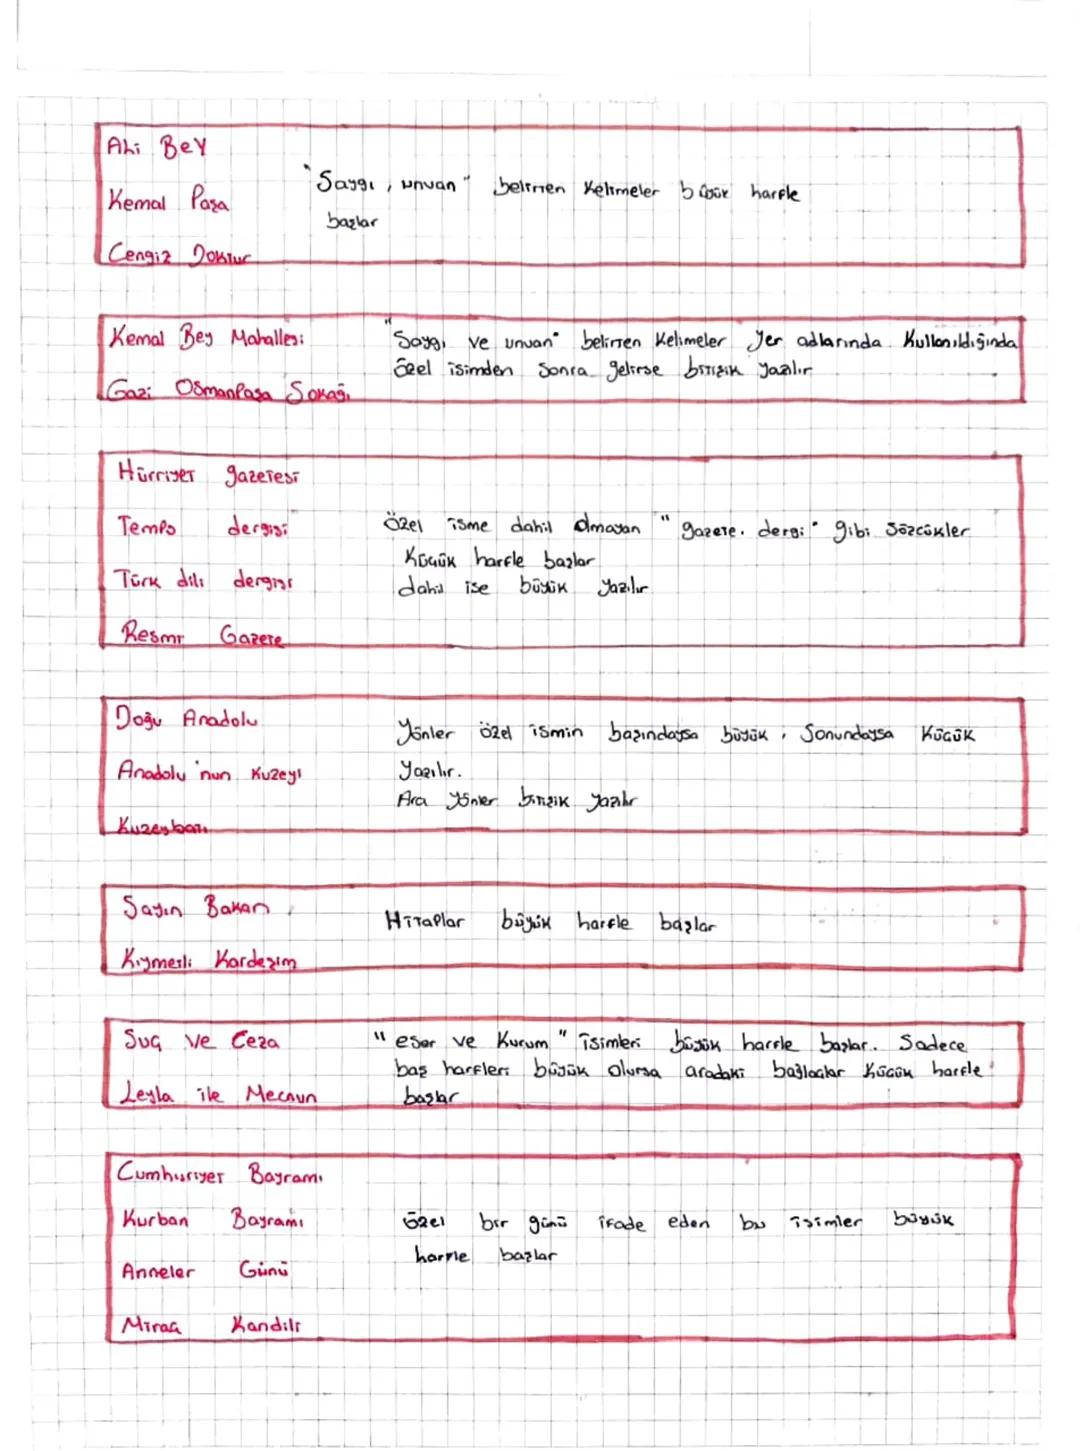 Ali Bey
Kemal Paşa
Cengiz Doktor
"Saygı, unvan" belirten kelimeler büyük harfle
başlar
Kemal Bey Mahallesi
Gazi OsmanPaşa Sokağı
"Saygı ve unvan" belirten kelimeler yer adlarında kullanıldığında
özel isimden sonra gelirse bitişik yazılır
Hürriyet gazetesi
Tempo dergisi
Türk dili dergisi
Resmi Gazete
Özel isme dahil olmayan "gazete, dergi" gibi sözcükler
küçük harfle başlar
dahil ise büyük yazılır
Doğu Anadolu
Anadolu'nun kuzeyi
Kuzeybatı
Yönler özel ismin başındaysa büyük, sonundaysa küçük
yazılır.
Ara yönler bitişik yazılır
Sayın Bakan,
Kıymetli Kardeşim
Hitaplar büyük harfle başlar
Suç ve Ceza
Leyla ile Mecnun
"eser ve kurum" isimleri büyük harfle başlar. Sadece
baş harfleri büyük olursa aradaki bağlaçlar küçük harfle
başlar
Cumhuriyet Bayramı
Kurban Bayramı
Anneler Günü
Miraç Kandili
özel bir günü ifade eden bu isimler büyük
harfle başlar